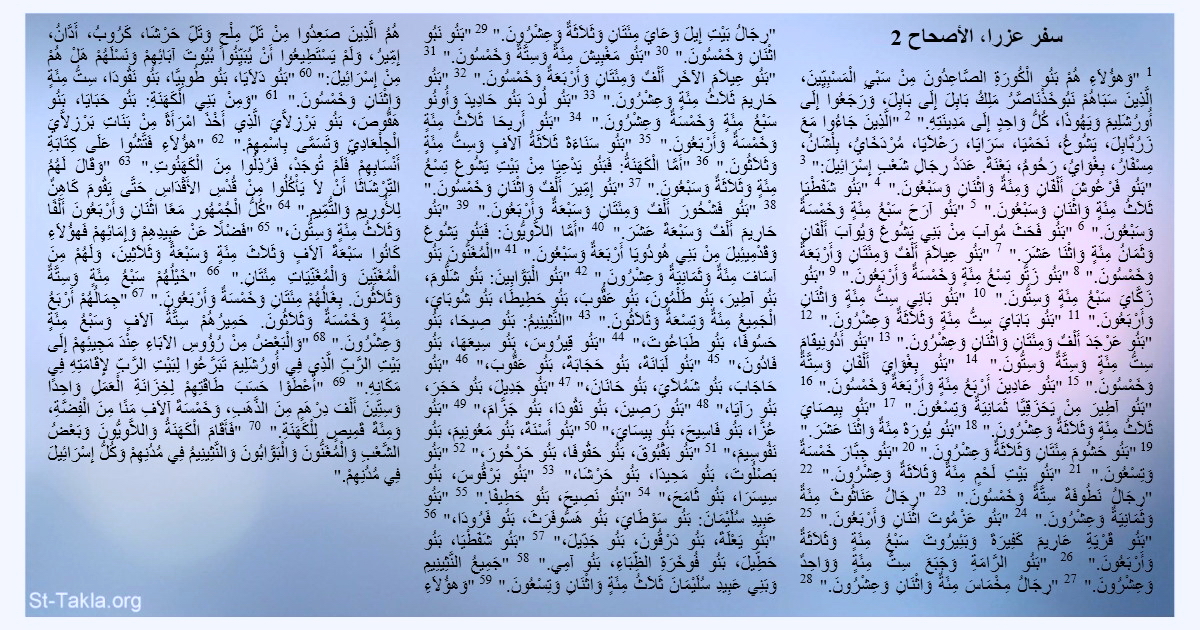 سفر عزرا، الأصحاح 2
1 "وَهؤُلاَءِ هُمْ بَنُو الْكُورَةِ الصَّاعِدُونَ مِنْ سَبْيِ الْمَسْبِيِّينَ،
الَّذِينَ سَبَاهُمْ نَبُوخَذْنَاصَّرُ مَلِكُ بَابِلَ إِلَى بَابِلَ، وَرَجَعُوا إِلَى
أُورُشَلِيمَ وَيَهُوذَا، كُلُّ وَاحِدٍ إِلَى مَدِينَتِهِ." 2 "الَّذِينَ جَاءُوا مَعَ
زَرُبَّابِلَ، يَشُوعُ، نَحَمْيَا، سَرَايَا، رَعْلاَيَا، مُرْدَخَايُ، بِلْشَانُ،
مِسْفَارُ، بِغْوَايُ، رَحُومُ، بَعْنَةُ. عَدَدُ رِجَالِ شَعْبِ إِسْرَائِيلَ:" 3
"بَنُو فَرْعُوشَ أَلْفَانِ وَمِئَةٌ وَاثْنَانِ وَسَبْعُونَ." 4 "بَنُو شَفَطْيَا
ثَلاَثُ مِئَةٍ وَاثْنَانِ وَسَبْعُونَ." 5 "بَنُو آرَحَ سَبْعُ مِئَةٍ وَخَمْسَةٌ
وَسَبْعُونَ." 6 "بَنُو فَحَثَ مُوآبَ مِنْ بَنِي يَشُوعَ وَيُوآبَ أَلْفَانِ
وَثَمَانُ مِئَةٍ وَاثْنَا عَشَرَ." 7 "بَنُو عِيلاَمَ أَلْفٌ وَمِئَتَانِ وَأَرْبَعَةٌ
وَخَمْسُونَ." 8 "بَنُو زَتُّو تِسْعُ مِئَةٍ وَخَمْسَةٌ وَأَرْبَعُونَ." 9 "بَنُو
زَكَّايَ سَبْعُ مِئَةٍ وَسِتُّونَ." 10 "بَنُو بَانِي سِتُّ مِئَةٍ وَاثْنَانِ
وَأَرْبَعُونَ." 11 "بَنُو بَابَايَ سِتُّ مِئَةٍ وَثَلاَثَةٌ وَعِشْرُونَ." 12
"بَنُو عَرْجَدَ أَلْفٌ وَمِئَتَانِ وَاثْنَانِ وَعِشْرُونَ." 13 "بَنُو أَدُونِيقَامَ
سِتُّ مِئَةٍ وَسِتَّةٌ وَسِتُّونَ." 14 "بَنُو بِغْوَايَ أَلْفَانِ وَسِتَّةٌ
وَخَمْسُونَ." 15 "بَنُو عَادِينَ أَرْبَعُ مِئَةٍ وَأَرْبَعَةٌ وَخَمْسُونَ." 16
"بَنُو آطِيرَ مِنْ يَحَزَقِيَّا ثَمَانِيَةٌ وَتِسْعُونَ." 17 "بَنُو بِيصَايَ
ثَلاَثُ مِئَةٍ وَثَلاَثَةٌ وَعِشْرُونَ." 18 "بَنُو يُورَةَ مِئَةٌ وَاثْنَا عَشَرَ."
19 "بَنُو حَشُومَ مِئَتَانِ وَثَلاَثَةٌ وَعِشْرُونَ." 20 "بَنُو جِبَّارَ خَمْسَةٌ
وَتِسْعُونَ." 21 "بَنُو بَيْتِ لَحْمٍ مِئَةٌ وَثَلاَثَةٌ وَعِشْرُونَ." 22
"رِجَالُ نَطُوفَةَ سِتَّةٌ وَخَمْسُونَ." 23 "رِجَالُ عَنَاثُوثَ مِئَةٌ
وَثَمَانِيَةٌ وَعِشْرُونَ." 24 "بَنُو عَزْمُوتَ اثْنَانِ وَأَرْبَعُونَ." 25
"بَنُو قَرْيَةِ عَارِيمَ كَفِيرَةَ وَبَئِيرُوتَ سَبْعُ مِئَةٍ وَثَلاَثَةٌ
وَأَرْبَعُونَ." 26 "بَنُو الرَّامَةِ وَجَبَعَ سِتُّ مِئَةٍ وَوَاحِدٌ
وَعِشْرُونَ." 27 "رِجَالُ مِخْمَاسَ مِئَةٌ وَاثْنَانِ وَعِشْرُونَ." 28
"رِجَالُ بَيْتِ إِيلَ وَعَايَ مِئَتَانِ وَثَلاَثَةٌ وَعِشْرُونَ." 29 "بَنُو نَبُو
اثْنَانِ وَخَمْسُونَ." 30 "بَنُو مَغْبِيشَ مِئَةٌ وَسِتَّةٌ وَخَمْسُونَ." 31
"بَنُو عِيلاَمَ الآخَرِ أَلْفٌ وَمِئَتَانِ وَأَرْبَعَةٌ وَخَمْسُونَ." 32 "بَنُو
حَارِيمَ ثَلاَثُ مِئَةٍ وَعِشْرُونَ." 33 "بَنُو لُودَ بَنُو حَادِيدَ وَأُونُو
سَبْعُ مِئَةٍ وَخَمْسَةٌ وَعِشْرُونَ." 34 "بَنُو أَرِيحَا ثَلاَثُ مِئَةٍ
وَخَمْسَةٌ وَأَرْبَعُونَ." 35 "بَنُو سَنَاءَةَ ثَلاَثَةُ آلاَفٍ وَسِتُّ مِئَةٍ
وَثَلاَثُونَ." 36 "أَمَّا الْكَهَنَةُ: فَبَنُو يَدْعِيَا مِنْ بَيْتِ يَشُوعَ تِسْعُ
مِئَةٍ وَثَلاَثَةٌ وَسَبْعُونَ." 37 "بَنُو إِمِّيرَ أَلْفٌ وَاثْنَانِ وَخَمْسُونَ."
38 "بَنُو فَشْحُورَ أَلْفٌ وَمِئَتَانِ وَسَبْعَةٌ وَأَرْبَعُونَ." 39 "بَنُو
حَارِيمَ أَلْفٌ وَسَبْعَةَ عَشَرَ." 40 "أَمَّا اللاَّوِيُّونَ: فَبَنُو يَشُوعَ
وَقَدْمِيئِيلَ مِنْ بَنِي هُودُويَا أَرْبَعَةٌ وَسَبْعُونَ." 41 "الْمُغَنُّونَ بَنُو
آسَافَ مِئَةٌ وَثَمَانِيَةٌ وَعِشْرُونَ." 42 "بَنُو الْبَوَّابِينَ: بَنُو شَلُّومَ،
بَنُو آطِيرَ، بَنُو طَلْمُونَ، بَنُو عَقُّوبَ، بَنُو حَطِيطَا، بَنُو شُوبَايَ،
الْجَمِيعُ مِئَةٌ وَتِسْعَةٌ وَثَلاَثُونَ." 43 "النَّثِينِيمُ: بَنُو صِيحَا، بَنُو
حَسُوفَا، بَنُو طَبَاعُوتَ،" 44 "بَنُو قِيرُوسَ، بَنُو سِيعَهَا، بَنُو
فَادُونَ،" 45 "بَنُو لَبَانَةَ، بَنُو حَجَابَةَ، بَنُو عَقُّوبَ،" 46 "بَنُو
حَاجَابَ، بَنُو شَمُلاَيَ، بَنُو حَانَانَ،" 47 "بَنُو جَدِيلَ، بَنُو حَجَرَ،
بَنُو رَآيَا،" 48 "بَنُو رَصِينَ، بَنُو نَقُودَا، بَنُو جَزَّامَ،" 49 "بَنُو
عُزَّا، بَنُو فَاسِيحَ، بَنُو بِيسَايَ،" 50 "بَنُو أَسْنَةَ، بَنُو مَعُونِيمَ، بَنُو
نَفُوسِيمَ،" 51 "بَنُو بَقْبُوقَ، بَنُو حَقُوفَا، بَنُو حَرْحُورَ،" 52 "بَنُو
بَصْلُوتَ، بَنُو مَحِيدَا، بَنُو حَرْشَا،" 53 "بَنُو بَرْقُوسَ، بَنُو
سِيسَرَا، بَنُو ثَامَحَ،" 54 "بَنُو نَصِيحَ، بَنُو حَطِيفَا." 55 "بَنُو
عَبِيدِ سُلَيْمَانَ: بَنُو سَوْطَايَ، بَنُو هَسُّوفَرَثَ، بَنُو فَرُودَا،" 56
"بَنُو يَعْلَةَ، بَنُو دَرْقُونَ، بَنُو جَدِّيلَ،" 57 "بَنُو شَفَطْيَا، بَنُو
حَطِّيلَ، بَنُو فُوخَرَةِ الظِّبَاءِ، بَنُو آمِي." 58 "جَمِيعُ النَّثِينِيمِ
وَبَنِي عَبِيدِ سُلَيْمَانَ ثَلاَثُ مِئَةٍ وَاثْنَانِ وَتِسْعُونَ." 59 "وَهؤُلاَءِ
هُمُ الَّذِينَ صَعِدُوا مِنْ تَلِّ مِلْحٍ وَتَلِّ حَرْشَا، كَرُوبُ، أَدَّانُ،
إِمِّيرُ، وَلَمْ يَسْتَطِيعُوا أَنْ يُبَيِّنُوا بُيُوتَ آبَائِهِمْ وَنَسْلَهُمْ هَلْ هُمْ
مِنْ إِسْرَائِيلَ:" 60 "بَنُو دَلاَيَا، بَنُو طُوبِيَّا، بَنُو نَقُودَا، سِتُّ مِئَةٍ
وَاثْنَانِ وَخَمْسُونَ." 61 "وَمِنْ بَنِي الْكَهَنَةِ: بَنُو حَبَايَا، بَنُو
هَقُّوصَ، بَنُو بَرْزِلاَّيَ الَّذِي أَخَذَ امْرَأَةً مِنْ بَنَاتِ بَرْزِلاَّيَ
الْجِلْعَادِيِّ وَتَسَمَّى بِاسْمِهِمْ." 62 "هؤُلاَءِ فَتَّشُوا عَلَى كِتَابَةِ
أَنْسَابِهِمْ فَلَمْ تُوجَدْ، فَرُذِلُوا مِنَ الْكَهَنُوتِ." 63 "وَقَالَ لَهُمُ
التِّرْشَاثَا أَنْ لاَ يَأْكُلُوا مِنْ قُدْسِ الأَقْدَاسِ حَتَّى يَقُومَ كَاهِنٌ
لِلأُورِيمِ وَالتُّمِّيمِ." 64 "كُلُّ الْجُمْهُورِ مَعًا اثْنَانِ وَأَرْبَعُونَ أَلْفًا
وَثَلاَثُ مِئَةٍ وَسِتُّونَ،" 65 "فَضْلاً عَنْ عَبِيدِهِمْ وَإِمَائِهِمْ فَهؤُلاَءِ
كَانُوا سَبْعَةَ آلاَفٍ وَثَلاَثَ مِئَةٍ وَسَبْعَةً وَثَلاَثِينَ، وَلَهُمْ مِنَ
الْمُغَنِّينَ وَالْمُغَنِّيَاتِ مِئَتَانِ." 66 "خَيْلُهُمْ سَبْعُ مِئَةٍ وَسِتَّةٌ
وَثَلاَثُونَ. بِغَالُهُمْ مِئَتَانِ وَخَمْسَةٌ وَأَرْبَعُونَ." 67 "جِمَالُهُمْ أَرْبَعُ
مِئَةٍ وَخَمْسَةٌ وَثَلاَثُونَ. حَمِيرُهُمْ سِتَّةُ آلاَفٍ وَسَبْعُ مِئَةٍ
وَعِشْرُونَ." 68 "وَالْبَعْضُ مِنْ رُؤُوسِ الآبَاءِ عِنْدَ مَجِيئِهِمْ إِلَى
بَيْتِ الرَّبِّ الَّذِي فِي أُورُشَلِيمَ تَبَرَّعُوا لِبَيْتِ الرَّبِّ لإِقَامَتِهِ فِي
مَكَانِهِ." 69 "أَعْطَوْا حَسَبَ طَاقَتِهِمْ لِخِزَانَةِ الْعَمَلِ وَاحِدًا
وَسِتِّينَ أَلْفَ دِرْهَمٍ مِنَ الذَّهَبِ، وَخَمْسَةَ آلاَفِ مَنًا مِنَ الْفِضَّةِ،
وَمِئَةَ قَمِيصٍ لِلْكَهَنَةِ." 70 "فَأَقَامَ الْكَهَنَةُ وَاللاَّوِيُّونَ وَبَعْضُ
الشَّعْبِ وَالْمُغَنُّونَ وَالْبَوَّابُونَ وَالنَّثِينِيمُ فِي مُدُنِهِمْ وَكُلُّ إِسْرَائِيلَ
فِي مُدُنِهِمْ."
St-Takla.org